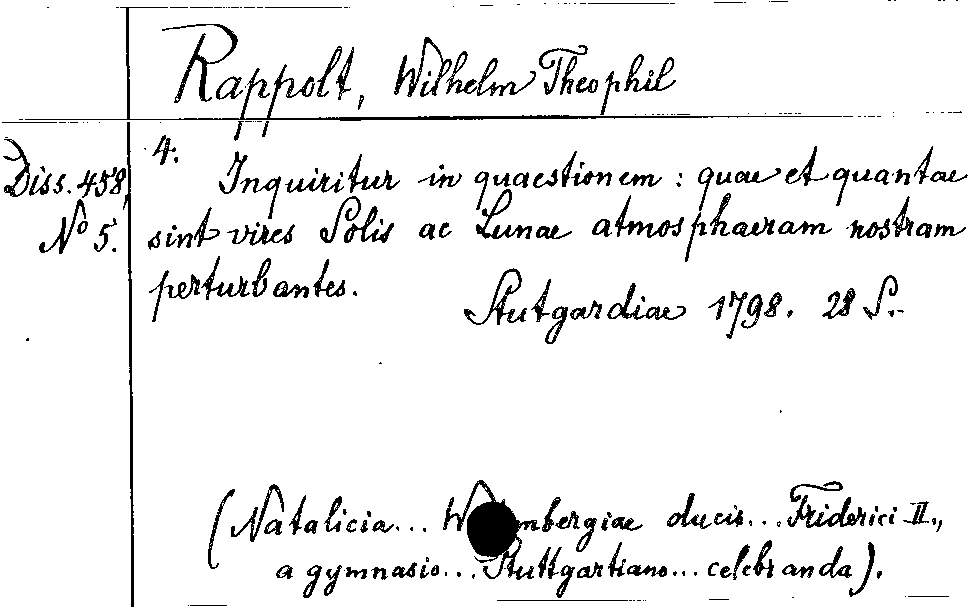 Rappolt, Wilhelm Theophil
4.
Diss. 458,
No 5.
Inquiritur in quaestionem: quae et quantae
sint vires Solis ac Lunae atmosphaeram nostram
perturbantes.
Stutgardiae 1798. 28 S.
(Natalicia... ducis... Friderici II.,
a gymnasio... Stuttgartiano... celebranda).